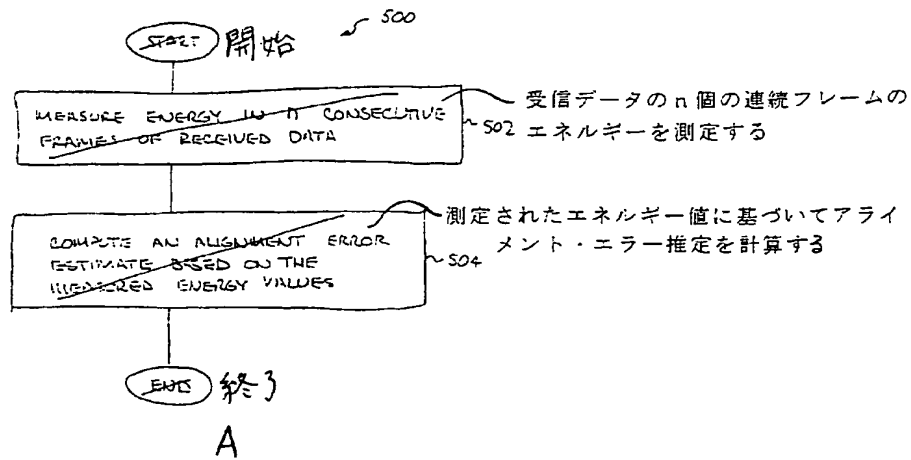 500
START 開始
MEASURE ENERGY IN n CONSECUTIVE
FRAMES OF RECEIVED DATA
502
受信データのn個の連続フレームの
エネルギーを測定する
COMPUTE AN ALIGNMENT ERROR
ESTIMATE BASED ON THE
MEASURED ENERGY VALUES
504
測定されたエネルギー値に基づいてアライ
メント・エラー推定を計算する
END 終了
A